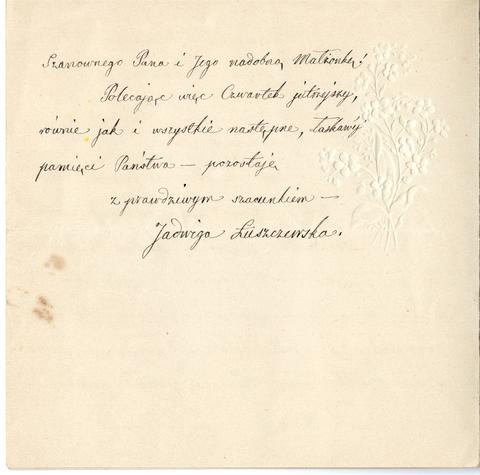 Szanownego Pana i Jego nadobną Małżonkę!
Polecając więc Czwartek jutrzejszy,
równie jak i wszystkie następne, łaskawéj
pamięci Państwa — pozostaję
z prawdziwym szacunkiem —
Jadwiga Łuszczewska.